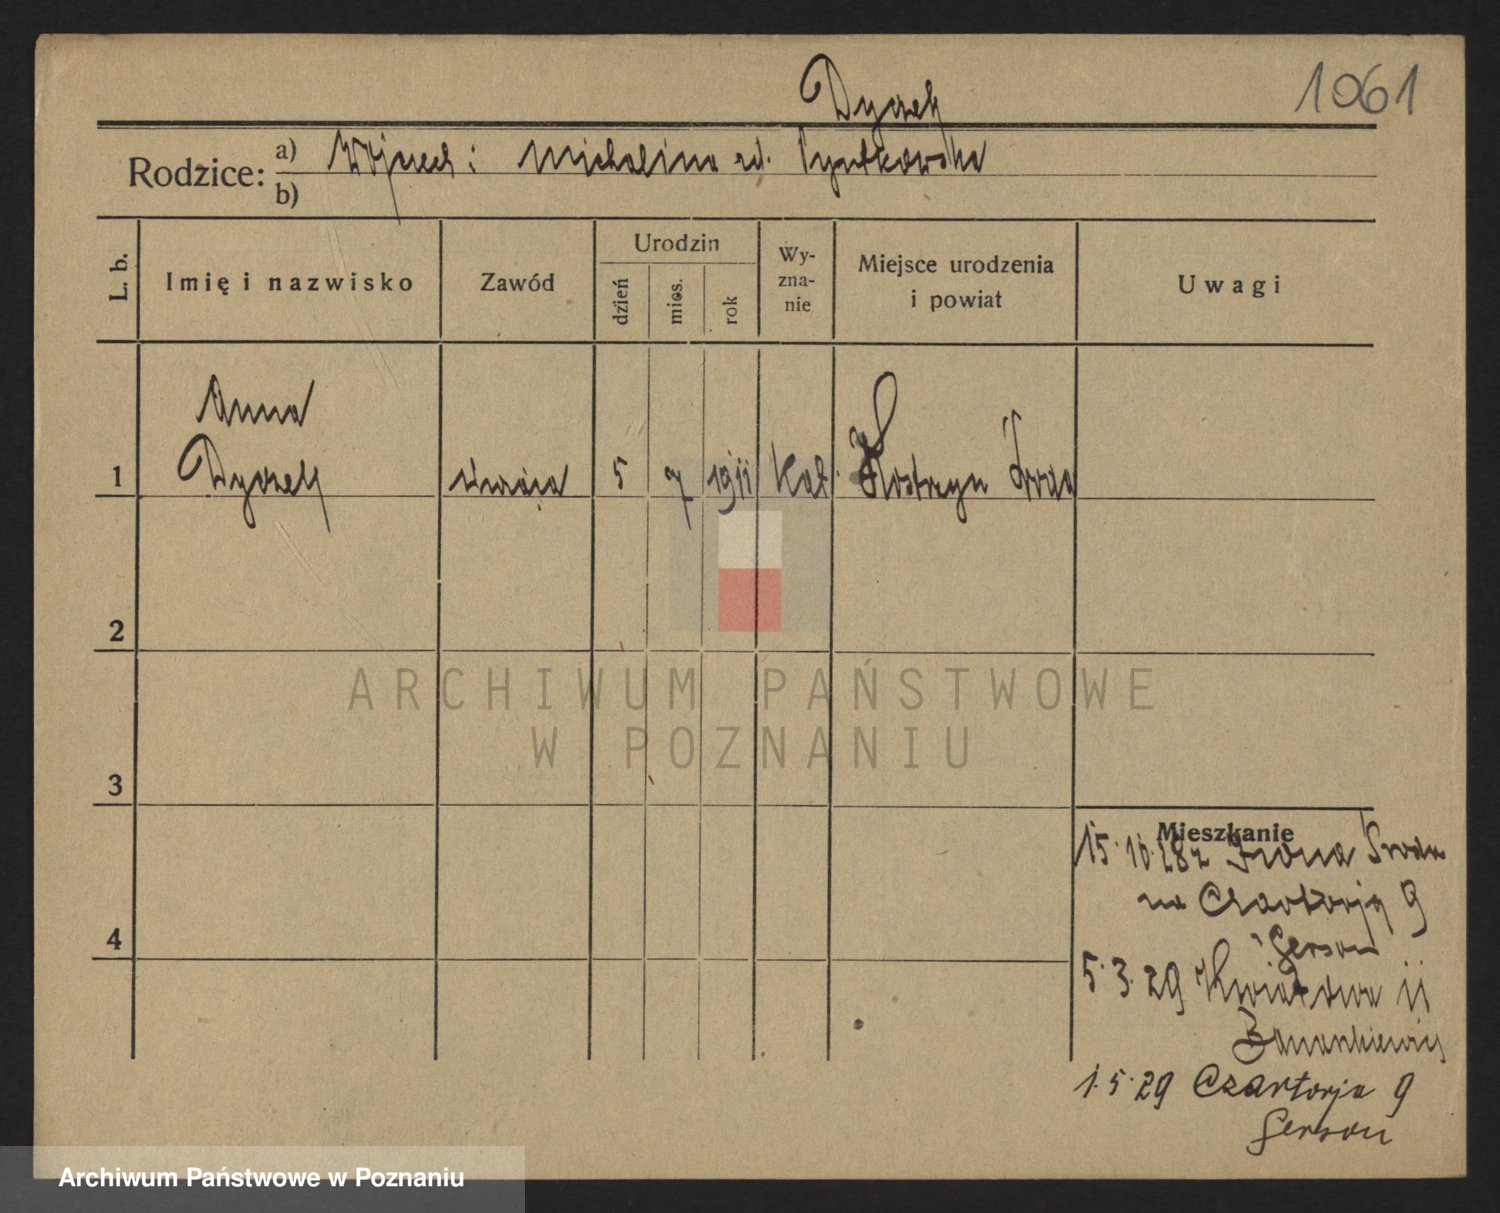 1061
Dyczek
Rodzice:
a) Wojciech i Michalina rd.
b)
L. b.
Imię i nazwisko
Zawód
Urodzin
dzień
mies.
rok
Wy-
zna-
nie
Miejsce urodzenia
i powiat
Uwagi
Anna
1 Dyczek 5 7 1911 Kat. Kostrzyn Środa
2
3
4
Mieszkanie
15.10.28 z Środa
na Czartorja 9
Gerson
5.3.29 11
1.5.29 Czartorja 9
Gerson
ARCHIWUM PAŃSTWOWE
W POZNANIU
Archiwum Państwowe w Poznaniu